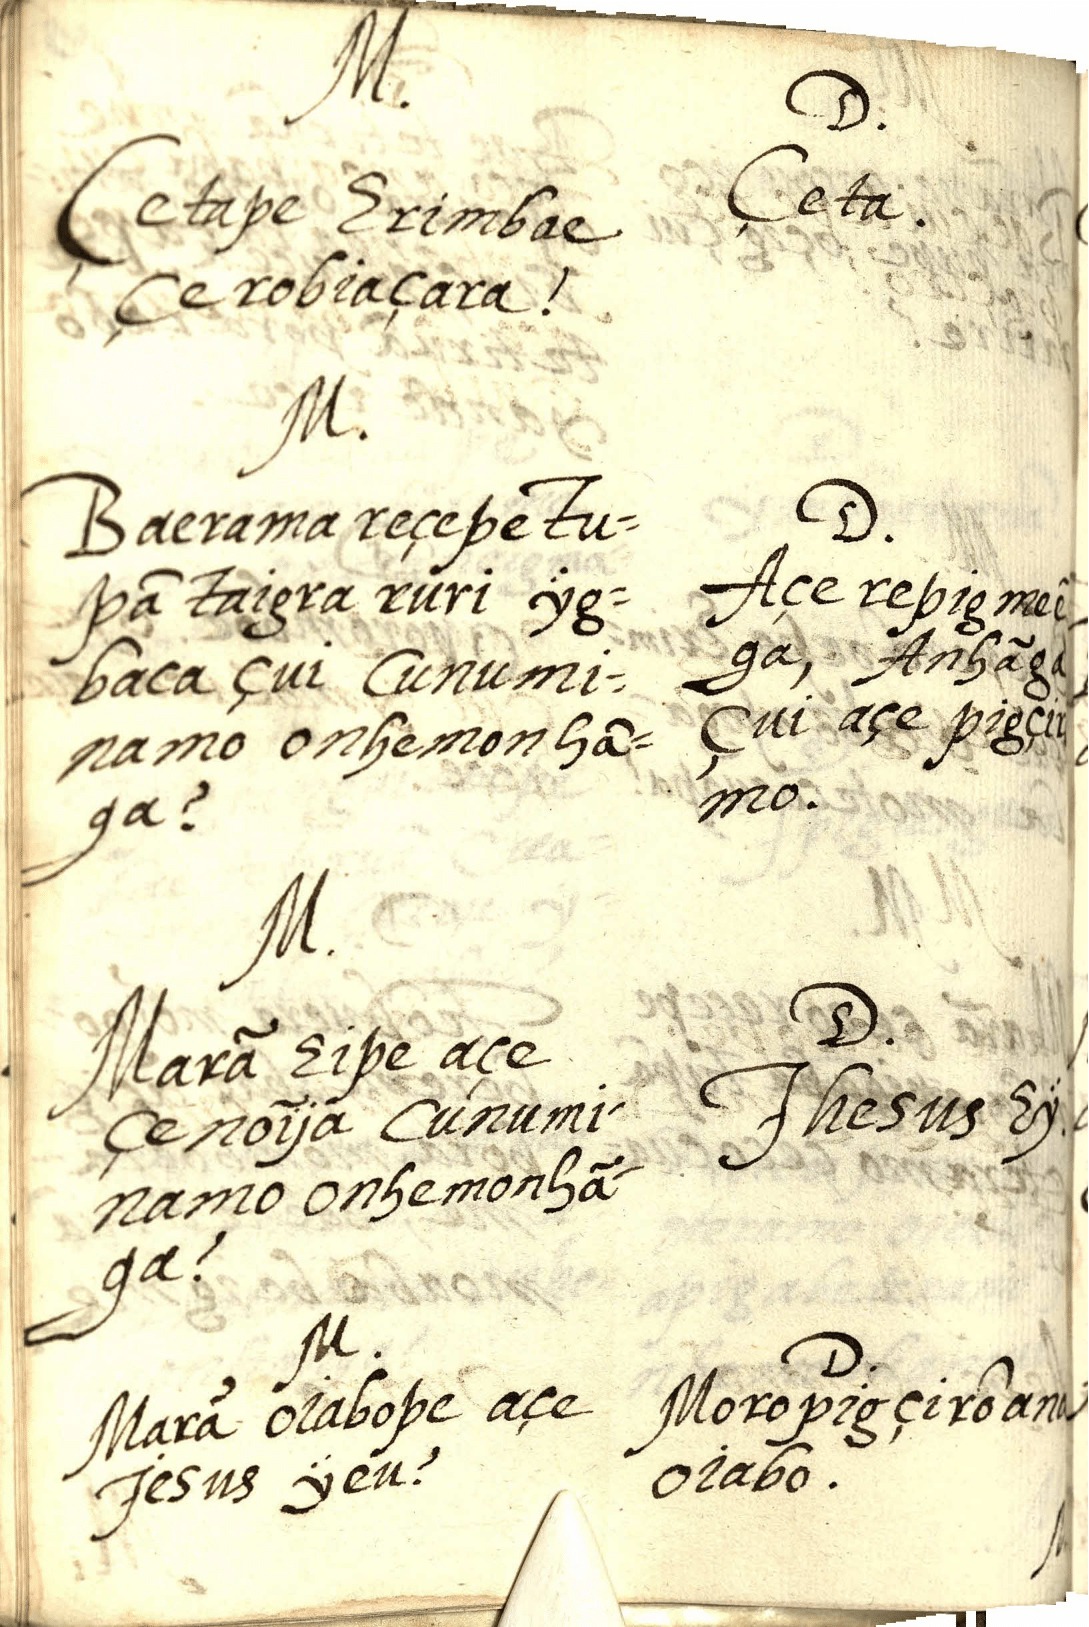 M.
Çetape Erimbae
Çerobiaçara!
D.
Çeta.
M.
Baerama reçepe Tu=
pã taigra ruri ÿg=
baca çui Cunumi=
namo onhemonhã=
ga?
D.
Açe repig meẽ
ga, Anhãga
Çui açe pigçirõ
mo.
M.
Marã Eipe açe
Çenoĩja Cunumi=
namo onhemonhã=
ga?
D.
Jhesus Eÿ.
M.
Marã oiabope açe
Jesus ÿeu?
D.
Moropigçirõana
oiabo.